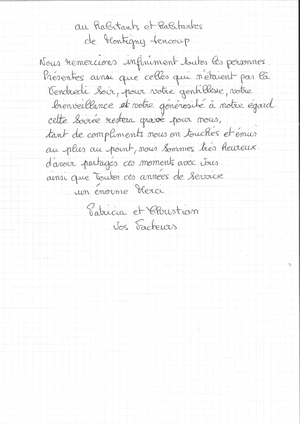 au habitants et habitantes
de Montigny Lencoup
Nous remercions infiniment toutes les personnes
Présentes ainsi que celles qui n'étaient pas là
Vendredi Soir, pour votre gentillesse, votre
bienveillance et votre générosité à notre égard
cette Soirée restera gravé pour nous,
tant de compliments nous on touchés et émus
au plus au point, nous sommes très heureux
d'avoir partagés ces moments avec vous
ainsi que Toutes ces années de Service
un énorme Merci
Patricia et Christian
Vos Facteurs